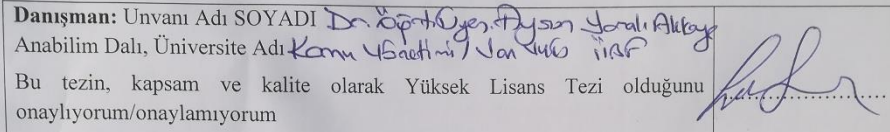 Danışman: Unvanı Adı SOYADI Dr. Öğrt. Üyesi. Aysun Yaralı Akkaya
Anabilim Dalı, Üniversite Adı Kamu Yönetimi / Van YYÜ İİBF
Bu tezin, kapsam ve kalite olarak Yüksek Lisans Tezi olduğunu
onaylıyorum/onaylamıyorum